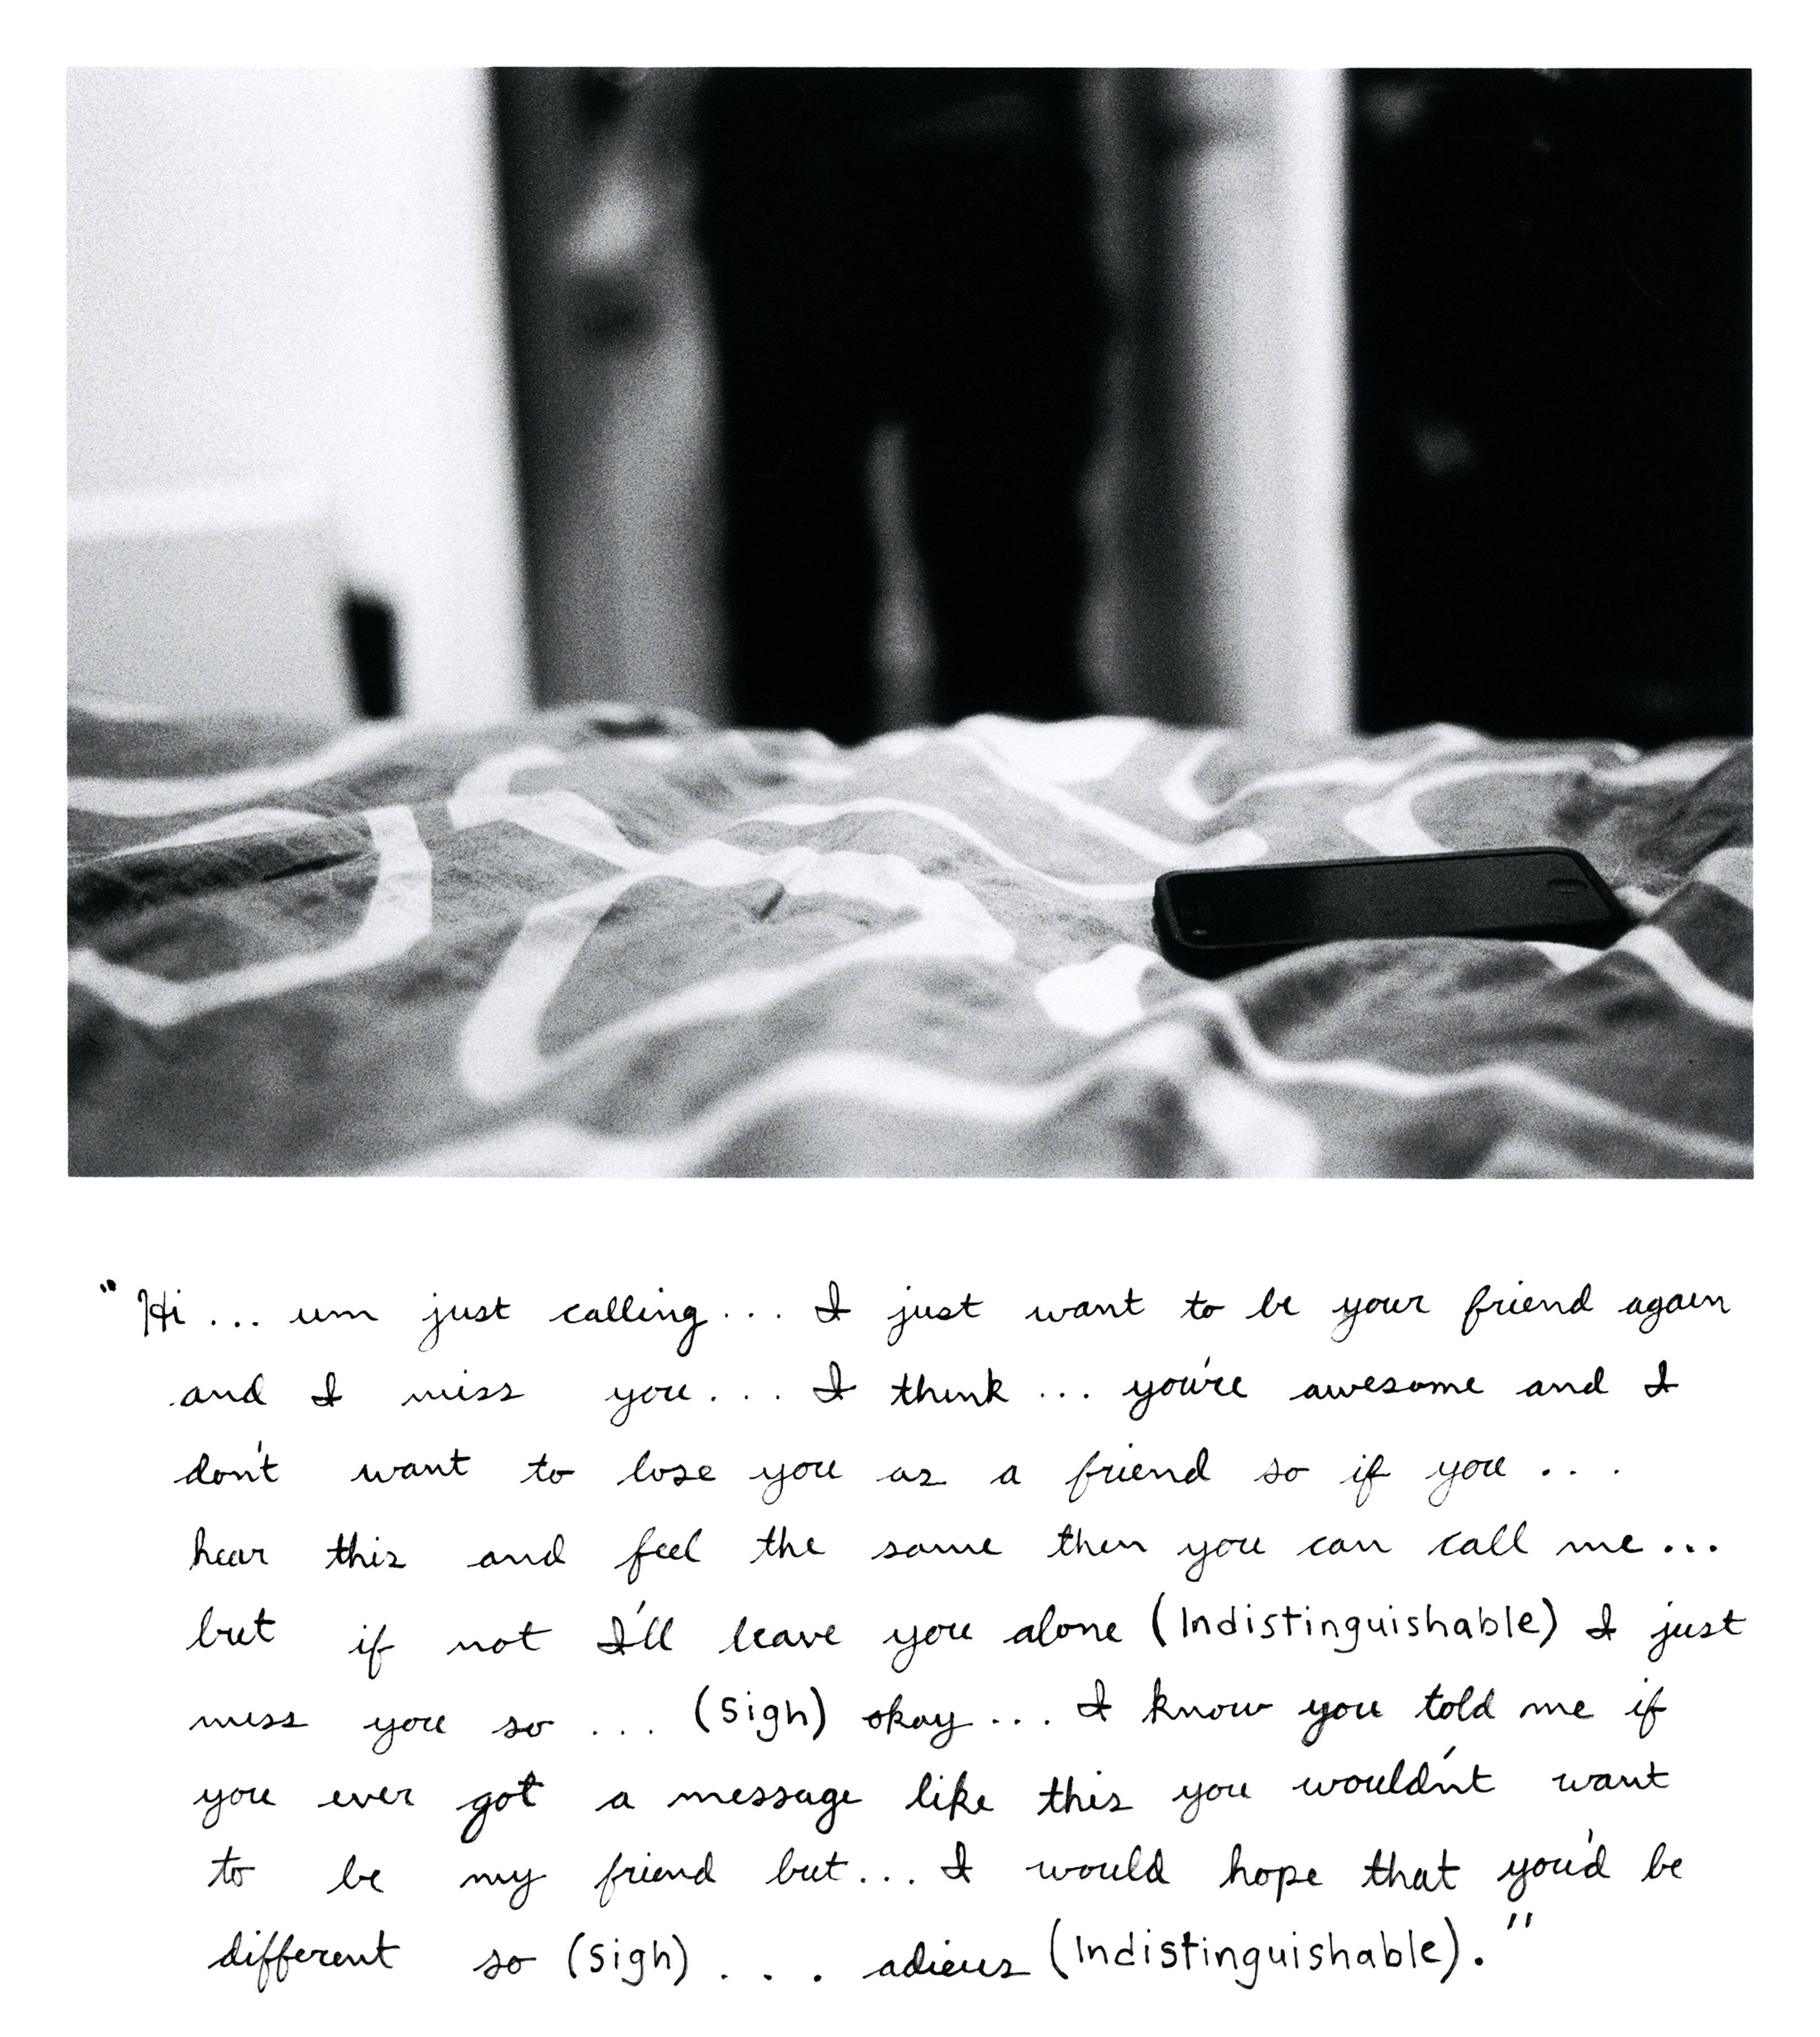 "Hi ... um just calling ... I just want to be your friend again
and I miss you ... I think ... you're awesome and I
don't want to lose you as a friend so if you ...
hear this and feel the same then you can call me ...
but if not I'll leave you alone (Indistinguishable) I just
miss you so ... (sigh) okay ... I know you told me if
you ever got a message like this you wouldn't want
to be my friend but ... I would hope that you'd be
different so (sigh) ... adieus (Indistinguishable)."